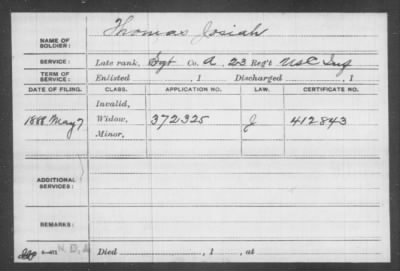 Thomas Josiah
NAME OF SOLDIER:
SERVICE: Late rank, Sgt Co. A, 23 Reg't USC Inf
TERM OF SERVICE: Enlisted , 1 Discharged , 1
DATE OF FILING. CLASS. APPLICATION NO. LAW. CERTIFICATE NO.
Invalid,
1888 May 7 Widow, 372325 J 412843
Minor,
ADDITIONAL SERVICES:
REMARKS:
Died , 1 , at